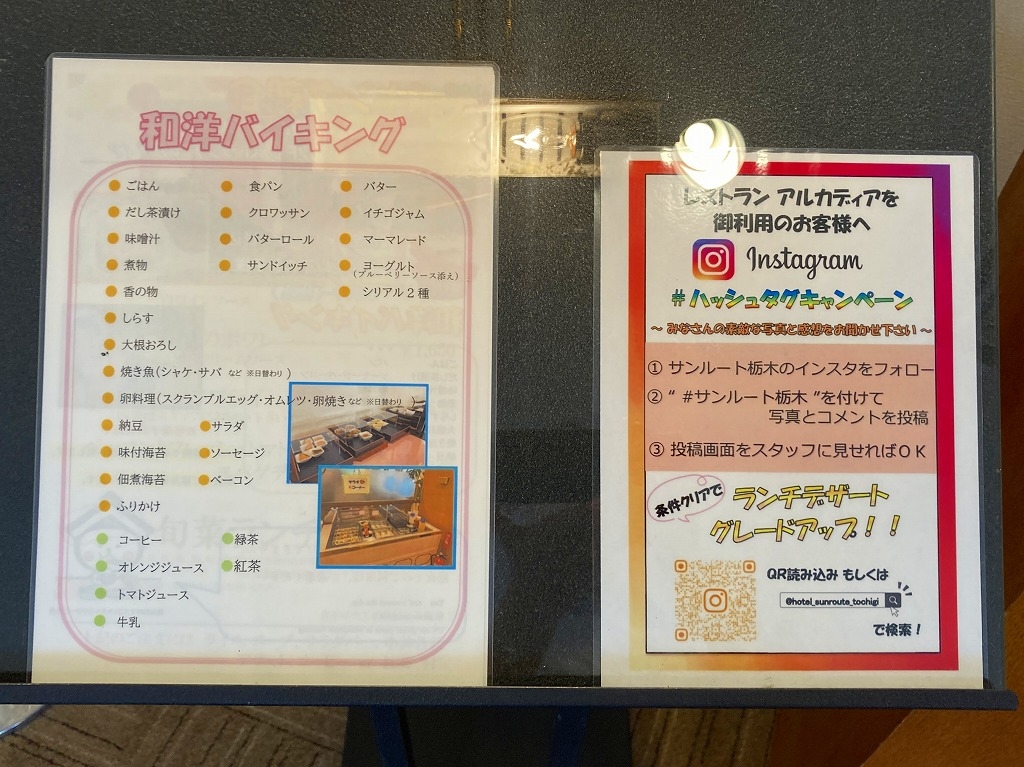 和洋バイキング
ごはん
だし茶漬け
味噌汁
煮物
香の物
しらす
大根おろし
焼き魚(シャケ・サバ など ※日替わり )
卵料理(スクランブルエッグ・オムレツ・卵焼き など ※日替わり )
納豆
味付海苔
佃煮海苔
ふりかけ
サラダ
ソーセージ
ベーコン
食パン
クロワッサン
バターロール
サンドイッチ
バター
イチゴジャム
マーマレード
ヨーグルト
(ブルーベリーソース添え)
シリアル2種
コーヒー
オレンジジュース
トマトジュース
牛乳
緑茶
紅茶
レストラン アルカディアを
御利用のお客様へ
Instagram
#ハッシュタグキャンペーン
～ みなさんの素敵な写真と感想をお聞かせ下さい ～
① サンルート栃木のインスタをフォロー
② “ #サンルート栃木 ”を付けて
写真とコメントを投稿
③ 投稿画面をスタッフに見せればOK
条件クリアで
ランチデザート
グレードアップ！！
QR読み込み もしくは
@hotel_sunroute_tochigi
で検索！